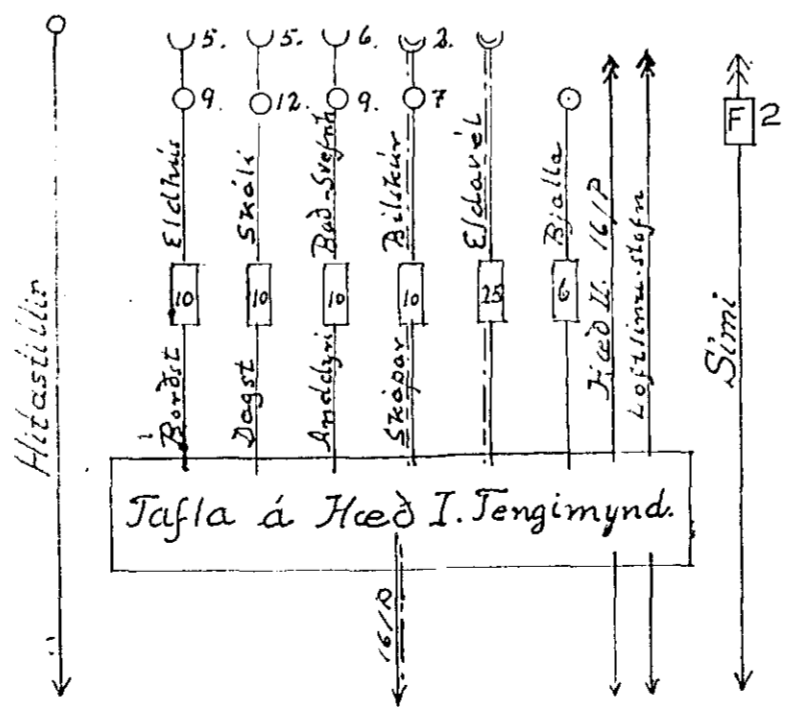 5. 5. 6. 2.
9. 12. 9. 7
F 2
Hitastillir
Eldhús
Skáli
Bað-Svefnh
Bílskúr
Eldavél
Bjalla
Hæð II. 16/P
Loftlínu-stofn
Sími
10 10 10 10 25 6
Borðst
Dagst
Anddyri
Skápar
Tafla á Hæð I. Tengimynd.